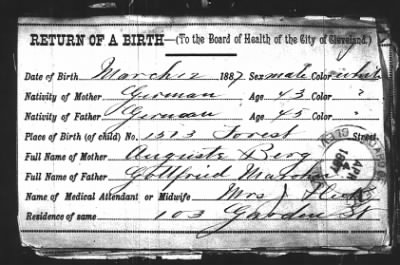 RETURN OF A BIRTH—(To the Board of Health of the City of Cleveland.)
Date of Birth March 12 1887 Sex male Color white
Nativity of Mother German Age 43 Color "
Nativity of Father German Age 45 Color "
Place of Birth (of child) No. 1573 Forest Street.
Full Name of Mother Auguste Berg
Full Name of Father Gottfried
Name of Medical Attendant or Midwife Mrs J
Residence of same 103 Garden St
APR